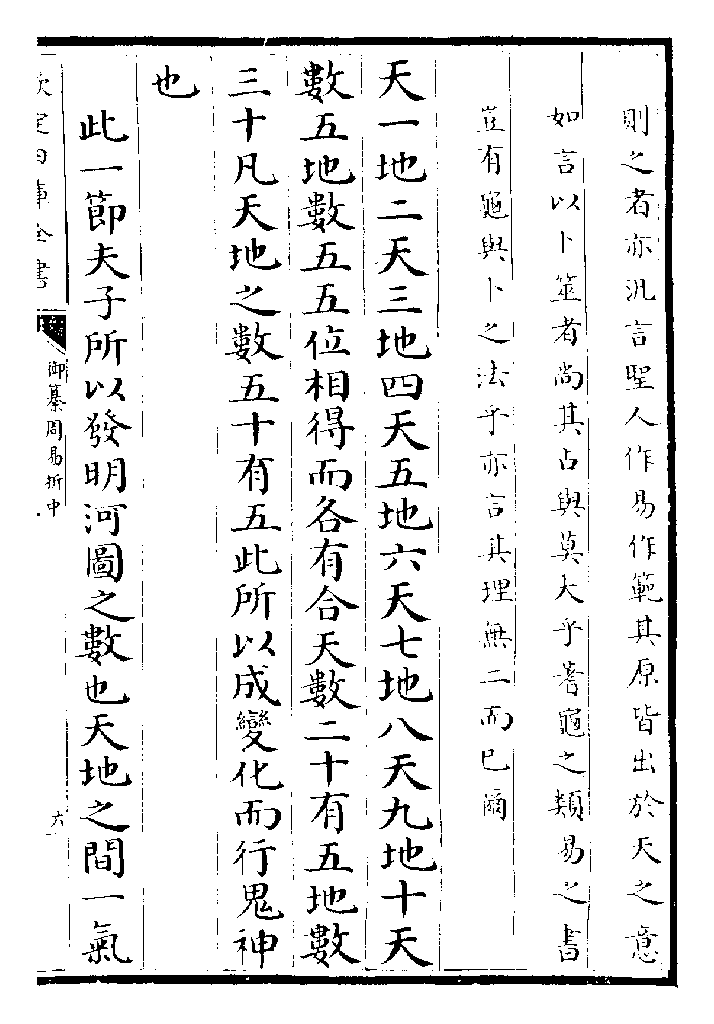 則之者亦汎言聖人作易作範其原皆出於天之意
如言以卜筮者尚其占與莫大乎蓍龜之類易之書
豈有龜與卜之法乎亦言其理無二而已爾
天一地二天三地四天五地六天七地八天九地十天
數五地數五五位相得而各有合天數二十有五地數
三十凡天地之數五十有五此所以成變化而行鬼神
也
此一節夫子所以發明河圖之數也天地之間一氣
欽定四庫全書
御纂周易折中
六